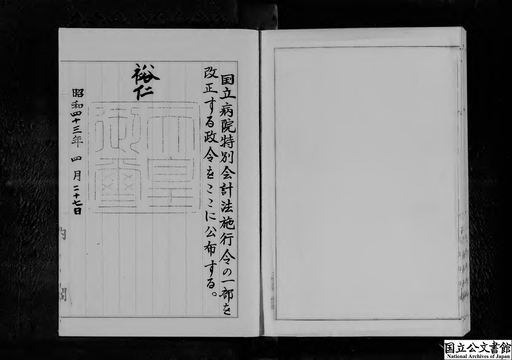 国立病院特別会計法施行令の一部を
改正する政令をここに公布する。
裕仁
天皇
御璽
昭和四十三年 四月二十七日
内閣
国立公文書館
National Archives of Japan